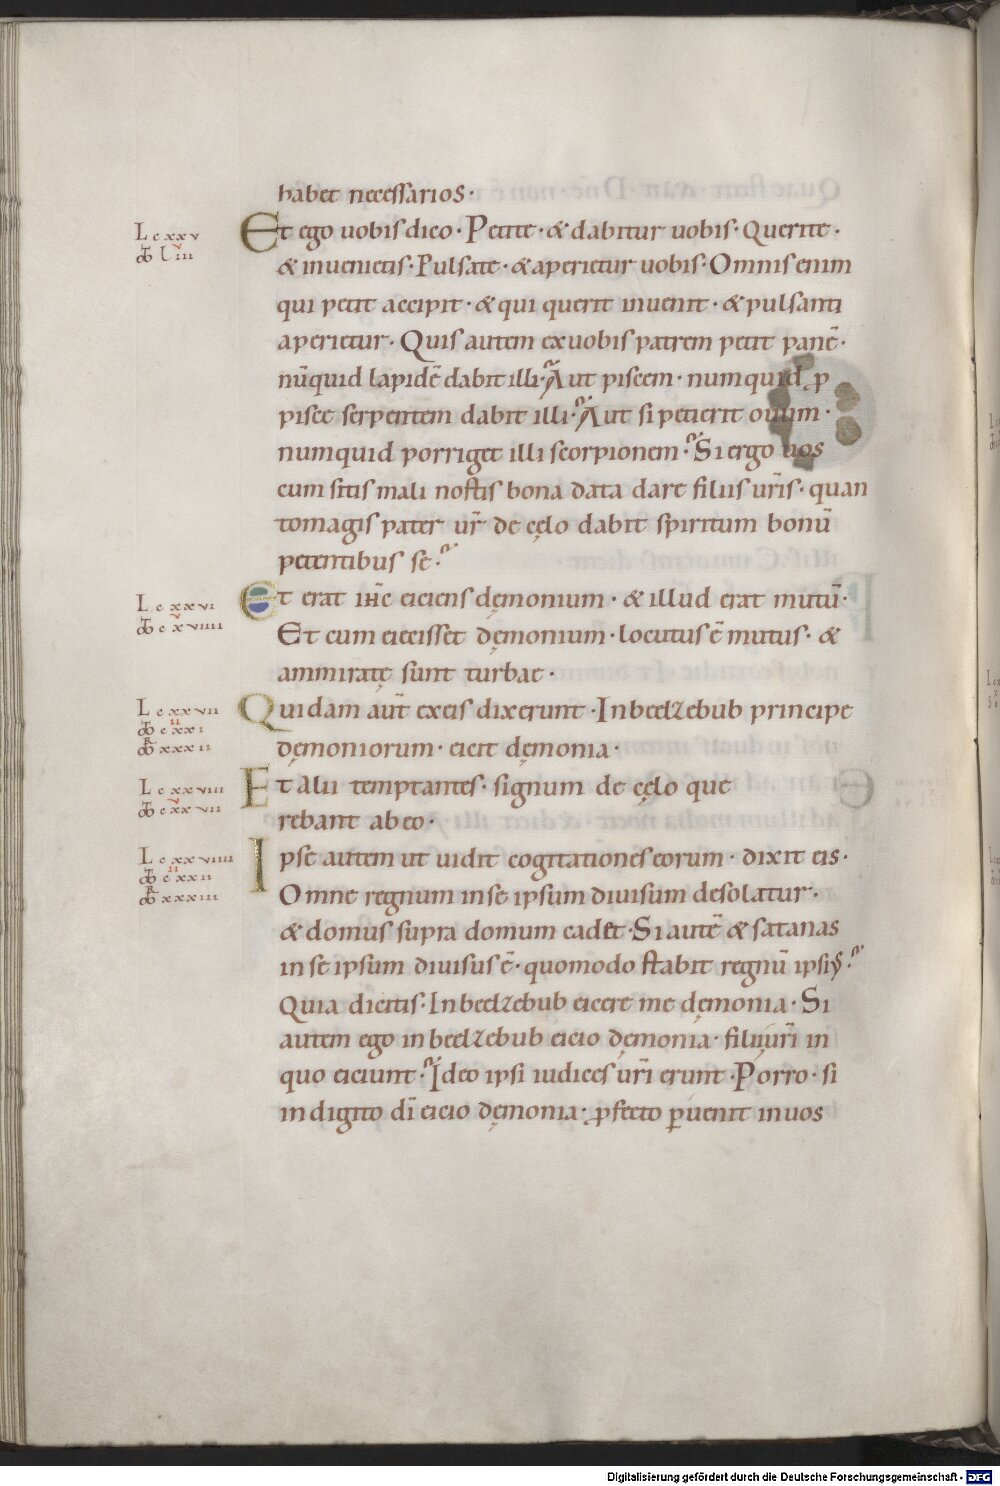 habet necessarios·
L cxxv
Et ego uobis dico· Petite· & dabitur uobis· Querite·
& inuenietis· Pulsate· & aperietur uobis· Omnis enim
qui petit accipit· & qui querit inuenit· & pulsanti
aperietur· Quis autem ex uobis patrem petit panē·
nūquid lapidē dabit illi? Aut piscem· numquid ꝓ
pisce serpentem dabit illi? Aut si petierit ouum·
numquid porriget illi scorpionem? Si ergo uos
cum sitis mali nostis bona data dare filiis ur̄is· quan
tomagis pater ur̄ de cęlo dabit spiritum bonū
petentibus se?
L cxxvi
Et erat ih̄c eiciens dęmonium· & illud erat mutū·
Et cum eiecisset dęmonium· locutus ē mutus· &
ammiratę sunt turbae·
L cxxvii
Quidam aūt ex eis dixerunt· In beelzebub principe
dęmoniorum· eicit dęmonia·
L cxxviii
Et alii temptantes· signum de cęlo que
rebant ab eo·
L cxxviiii
Ipse autem ut uidit cogitationes eorum· dixit eis·
Omne regnum in se ipsum diuisum desolatur·
& domus supra domum cadet· Si autē & satanas
in se ipsum diuisus ē· quomodo stabit regnū ipsiꝰ?
Quia dicitis· In beelzebub eicere me dęmonia· Si
autem ego in beelzebub eicio dęmonia· filii ur̄i in
quo eiciunt? Ideo ipsi iudices ur̄i erunt· Porro· si
in digito dī eicio dęmonia· ꝓfecto ꝑuenit in uos
Digitalisierung gefördert durch die Deutsche Forschungsgemeinschaft - DFG